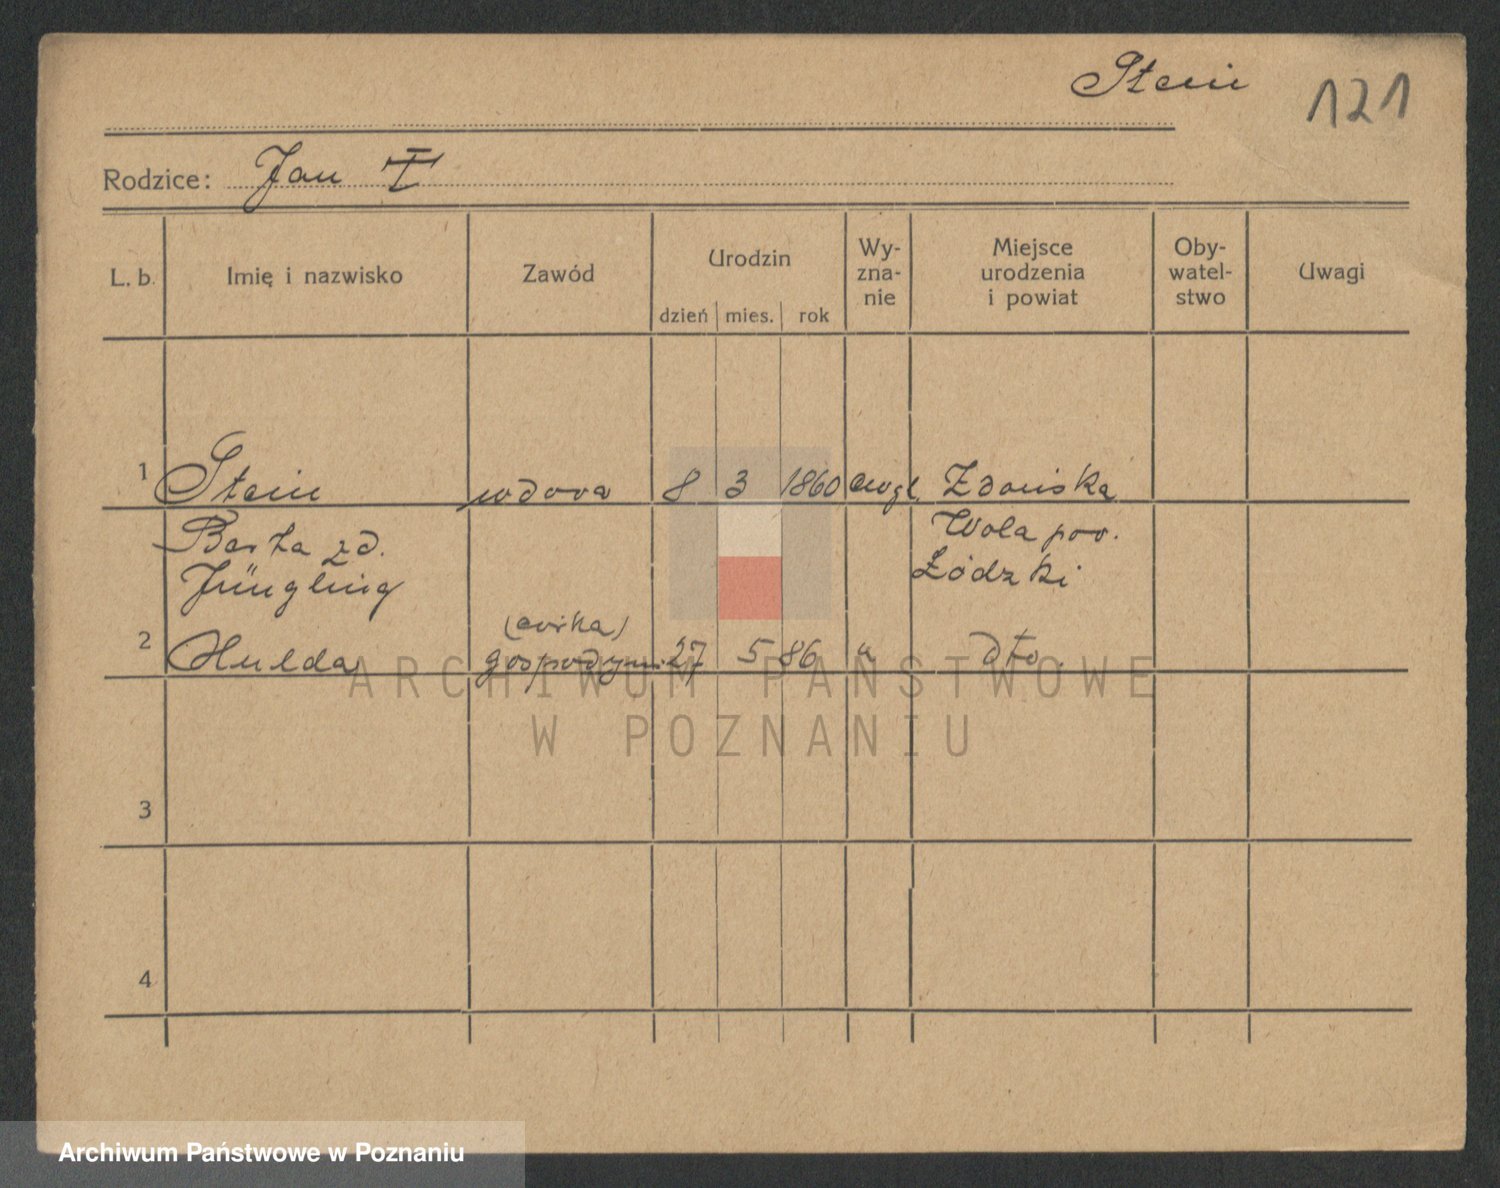 Stein
121
Rodzice: Jan
L. b. Imię i nazwisko Zawód Urodzin dzień mies. rok Wy- zna- nie Miejsce urodzenia i powiat Oby- watel- stwo Uwagi
1 Stein wdowa 8 3 1860 ewgl Zdońska
Berta zd. Wola pow.
Jüngling Łódzki
(córka)
2 Hulda gospodyni 27 5 86 " dto.
ARCHIWUM PAŃSTWOWE
W POZNANIU
3
4
Archiwum Państwowe w Poznaniu